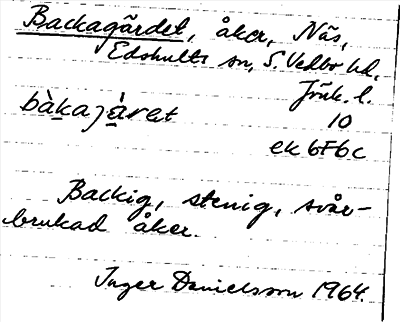 Backagärdet, åker, Näs,
Edshults sn, S. Vedbo hd,
Jönk. l.
bàkajà̱ret 10
ek 6F6c
Backig, stenig, svår-
brukad åker.
Inger Danielsson 1964.